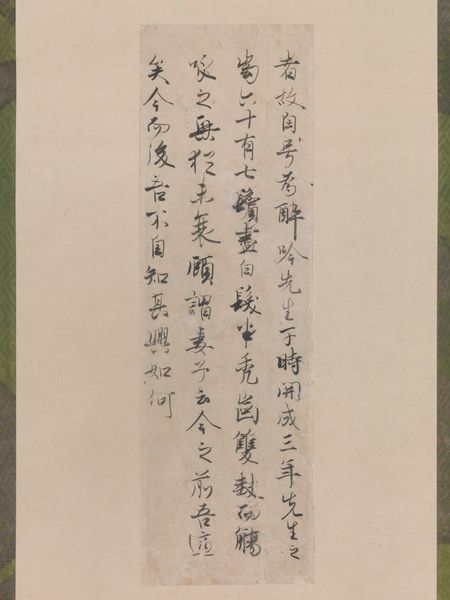 者故自号為醉吟先生于時開成三年先生之
歯六十有七鬚盡白髮半禿歯雙缺而觴
咏之興猶未衰顧謂妻子云今之前吾適
矣今而後吾不自知其興如何